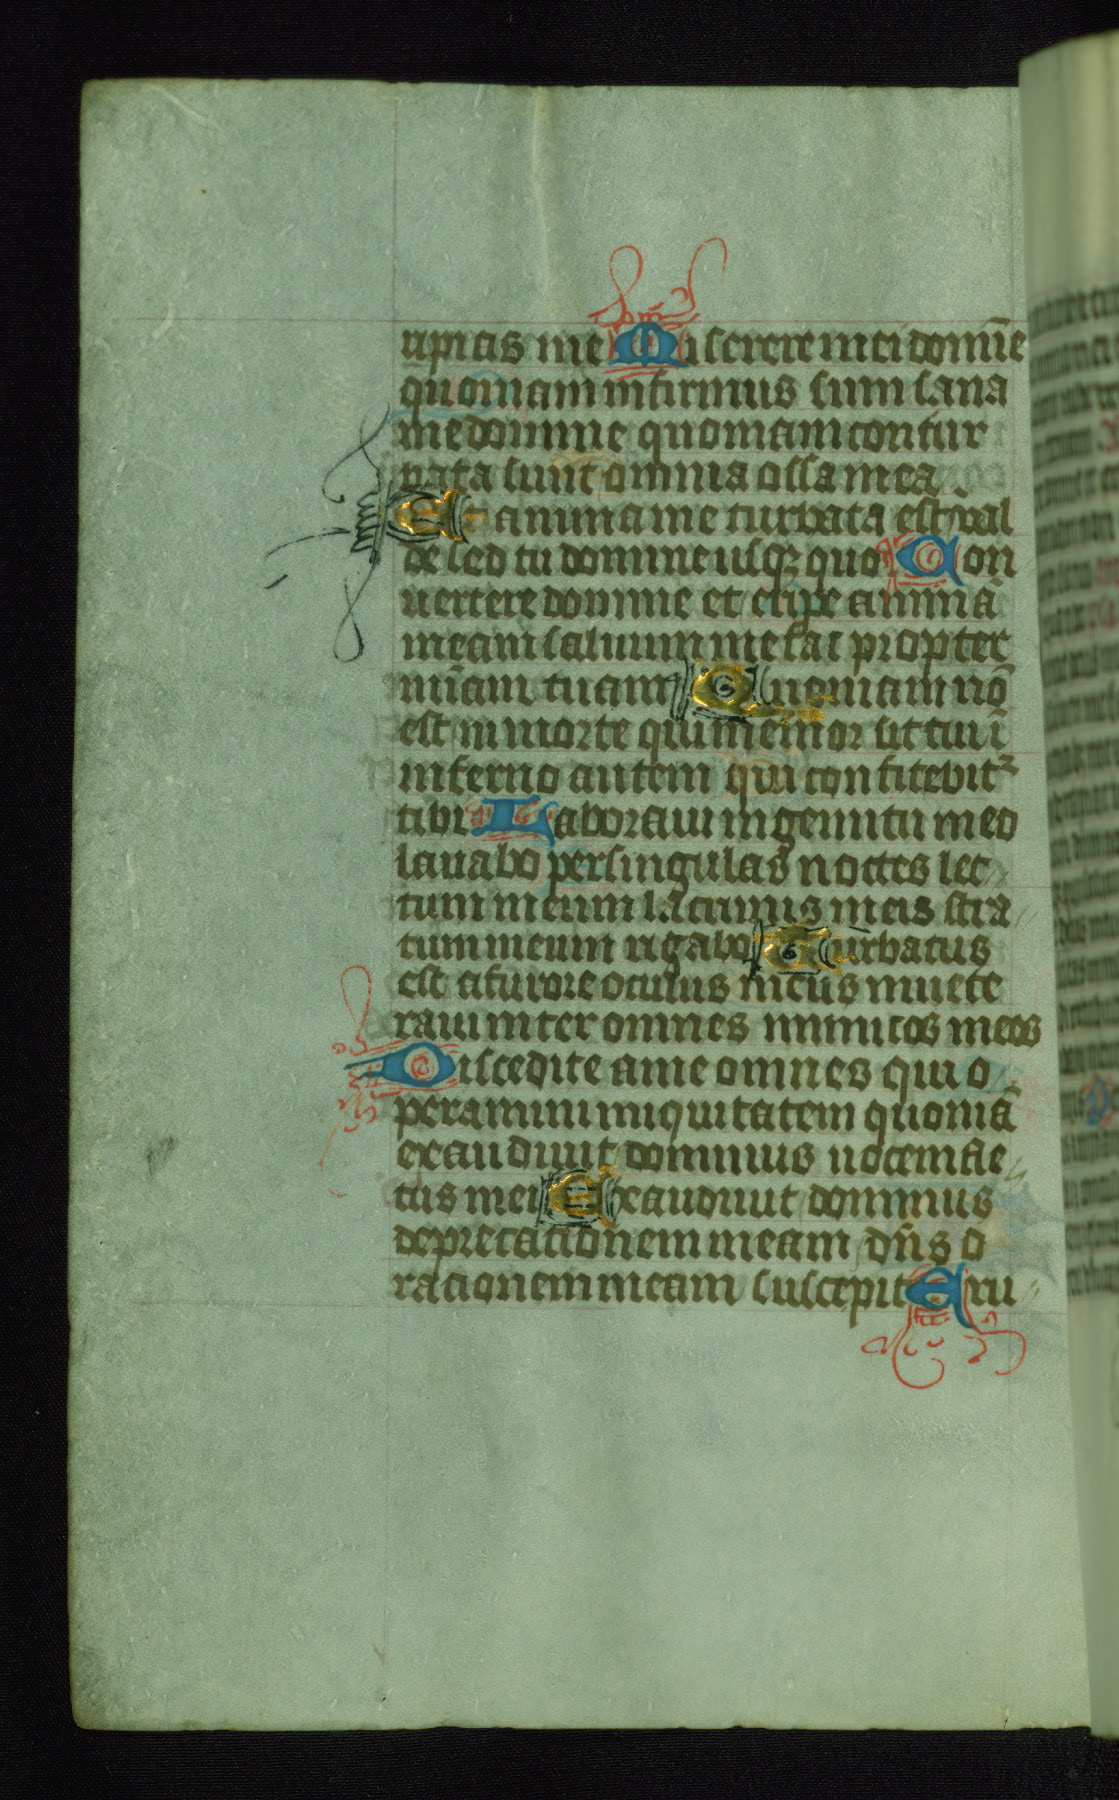 ripias me Miserere mei domīe
quoniam infirmus sum sana
me domine quoniam contur
bata sunt omnia ossa mea
Et anima me turbata est val
de sed tu domine usqȝ quo Con
uertere domine et eripe animā
meam saluum me fac propter
miā̄m tuam Quoniam nō
est in morte qui memor sit tui ī
inferno autem qui confitebitꝰ
tibi Laboraui in gemitu meo
lauabo per singulas noctes lec
tum meum lacrimis meis stra
tum meum rigabo Turbatus
est a furore oculus meus inuete
raui inter omnes inimicos meos
Discedite a me omnes qui o
peramini iniquitatem quoniā
exaudiuit dominus uocem fle
tus mei Exaudiuit dominus
deprecationem meam dn̄s o
rationem meam suscepit Eru